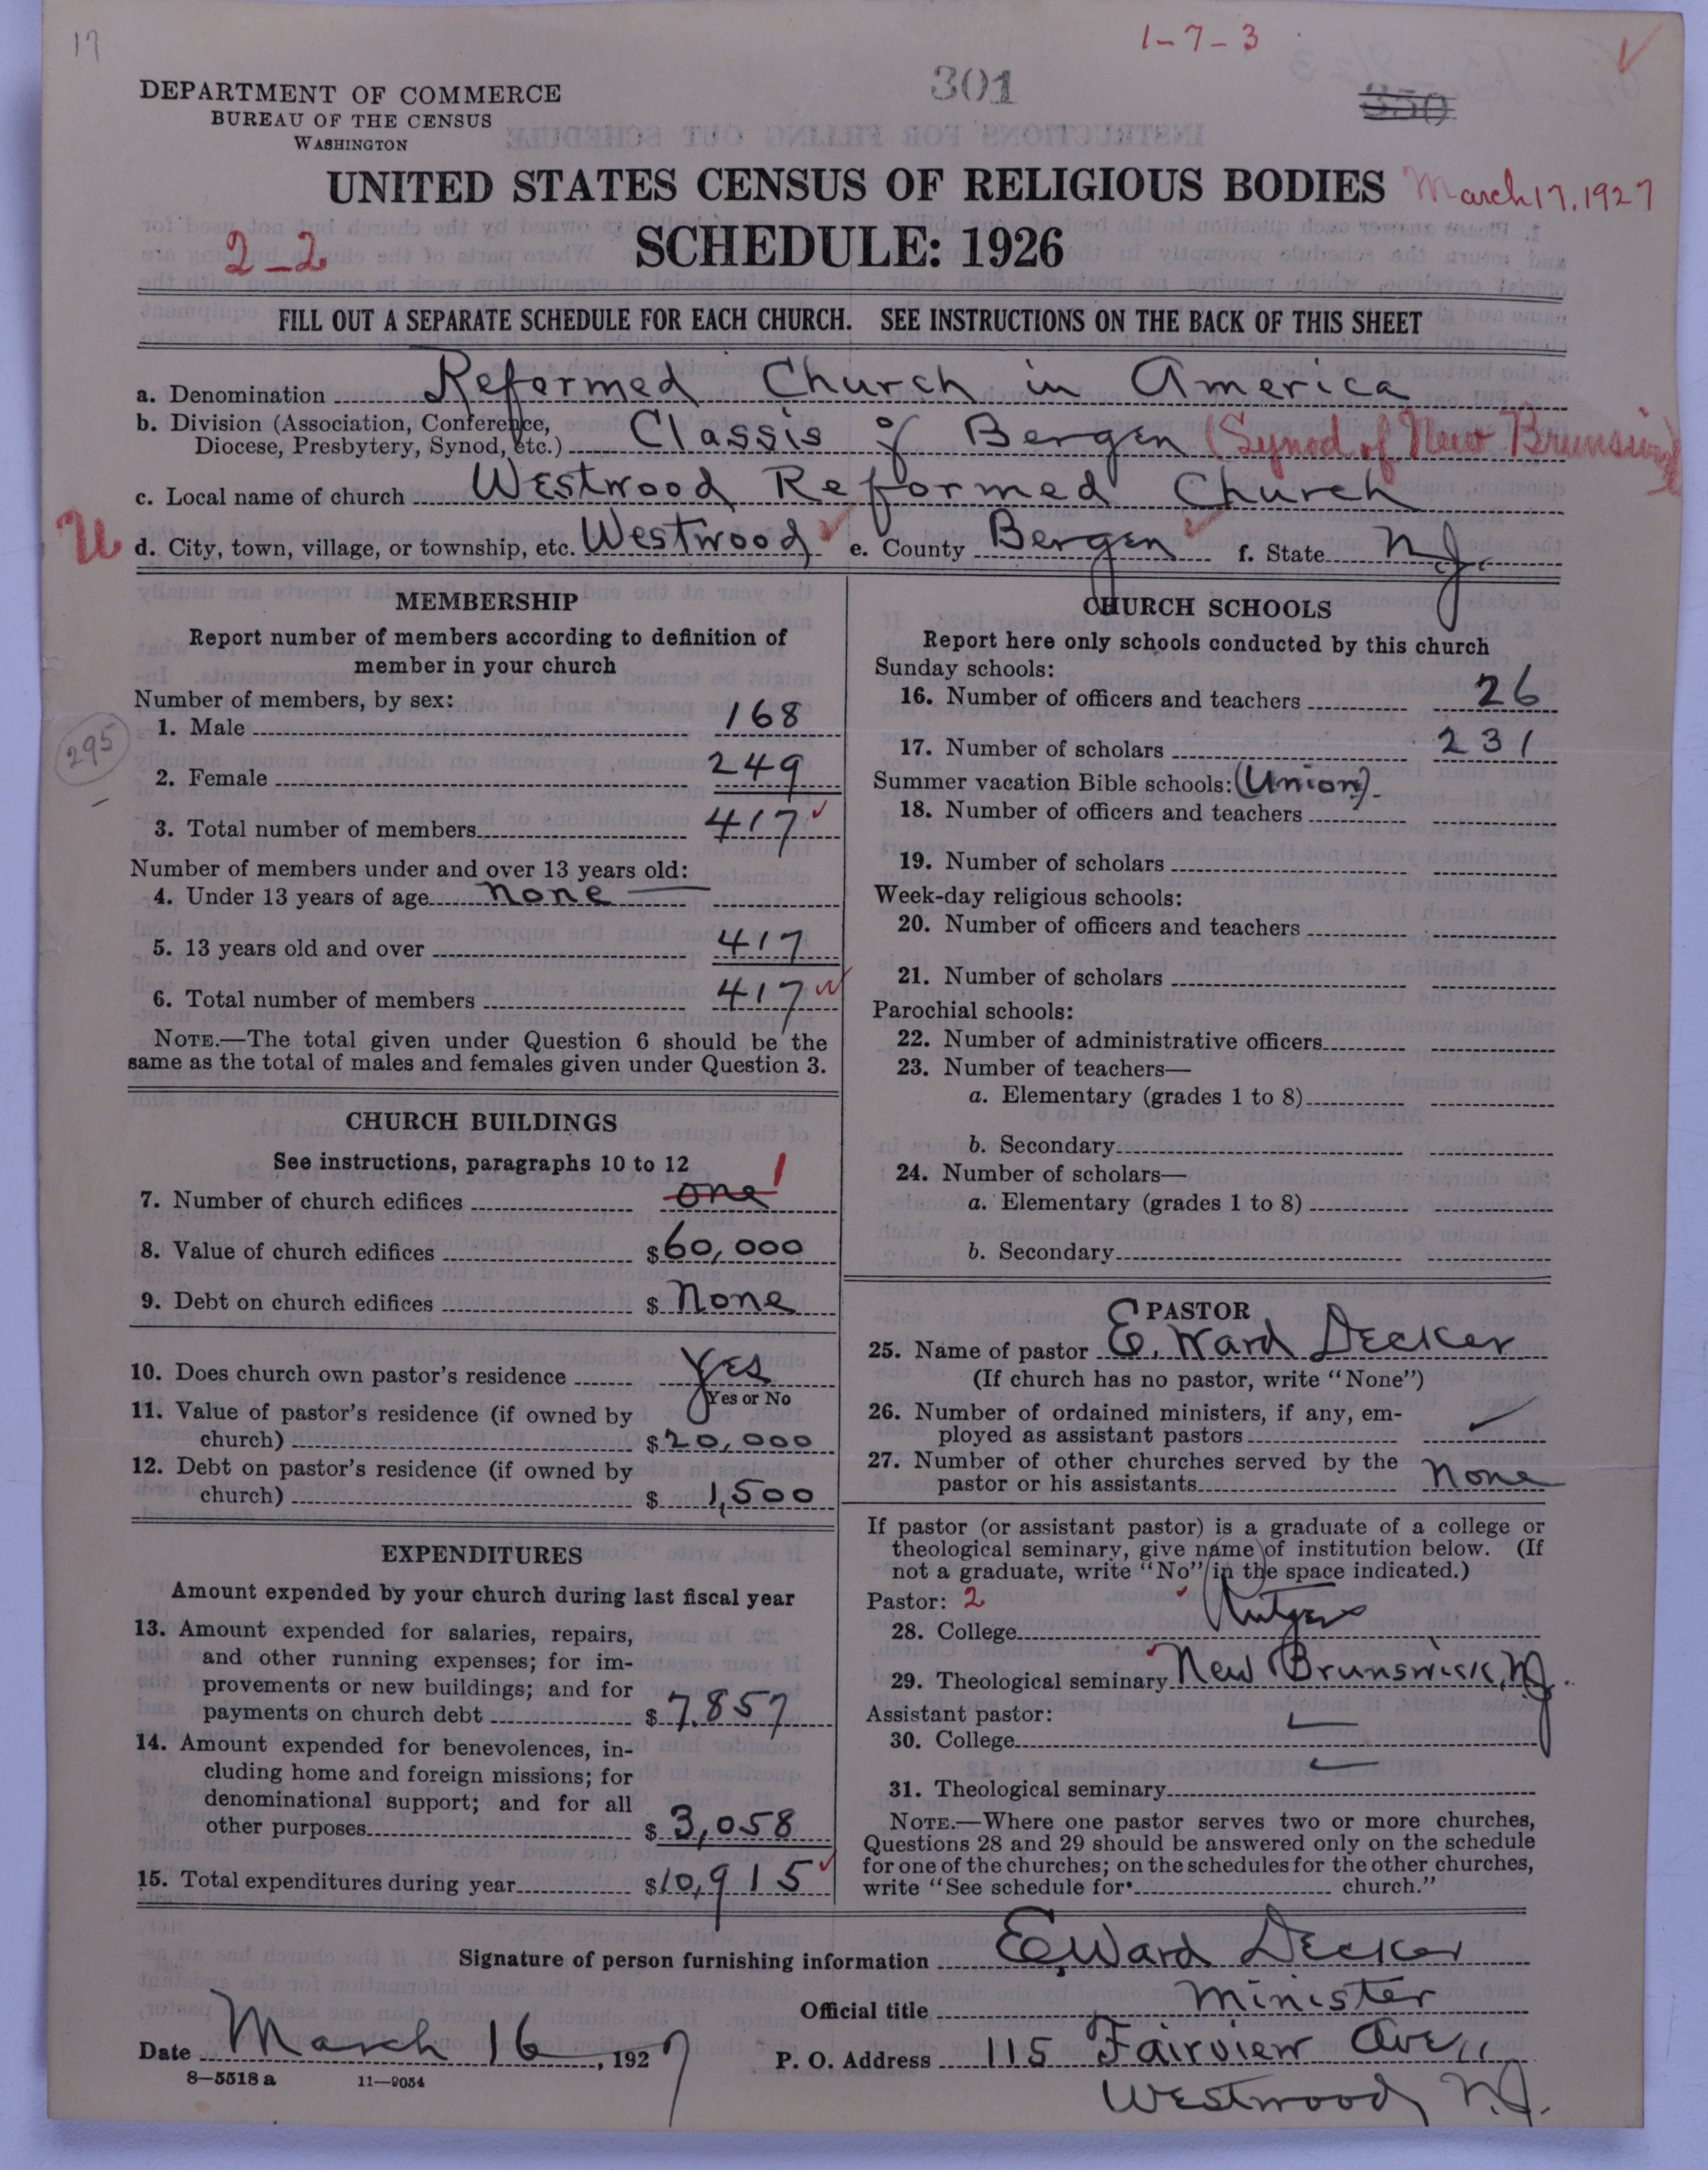 17
1-7-3
301
350
DEPARTMENT OF COMMERCE
BUREAU OF THE CENSUS
WASHINGTON
UNITED STATES CENSUS OF RELIGIOUS BODIES March 17, 1927
2-2 SCHEDULE: 1926
FILL OUT A SEPARATE SCHEDULE FOR EACH CHURCH. SEE INSTRUCTIONS ON THE BACK OF THIS SHEET
a. Denomination Reformed Church in America
b. Division (Association, Conference,
Diocese, Presbytery, Synod, etc.) Classis of Bergen (Synod of New Brunswick)
c. Local name of church Westwood Reformed Church
U d. City, town, village, or township, etc. Westwood e. County Bergen f. State N.J.
MEMBERSHIP
Report number of members according to definition of
member in your church
Number of members, by sex:
1. Male 168
295
2. Female 249
3. Total number of members 417
Number of members under and over 13 years old:
4. Under 13 years of age None
5. 13 years old and over 417
6. Total number of members 417
NOTE.—The total given under Question 6 should be the
same as the total of males and females given under Question 3.
CHURCH BUILDINGS
See instructions, paragraphs 10 to 12
7. Number of church edifices one 1
8. Value of church edifices $60,000
9. Debt on church edifices $ None
10. Does church own pastor's residence Yes
Yes or No
11. Value of pastor's residence (if owned by
church) $20,000
12. Debt on pastor's residence (if owned by
church) $ 1,500
EXPENDITURES
Amount expended by your church during last fiscal year
13. Amount expended for salaries, repairs,
and other running expenses; for im-
provements or new buildings; and for
payments on church debt $ 7.857
14. Amount expended for benevolences, in-
cluding home and foreign missions; for
denominational support; and for all
other purposes $ 3,058
15. Total expenditures during year $10,915
CHURCH SCHOOLS
Report here only schools conducted by this church
Sunday schools:
16. Number of officers and teachers 26
17. Number of scholars 231
Summer vacation Bible schools: (Union)
18. Number of officers and teachers
19. Number of scholars
Week-day religious schools:
20. Number of officers and teachers
21. Number of scholars
Parochial schools:
22. Number of administrative officers
23. Number of teachers—
a. Elementary (grades 1 to 8)
b. Secondary
24. Number of scholars—
a. Elementary (grades 1 to 8)
b. Secondary
PASTOR
25. Name of pastor E. Ward Decker
(If church has no pastor, write "None")
26. Number of ordained ministers, if any, em-
ployed as assistant pastors
27. Number of other churches served by the
pastor or his assistants None
If pastor (or assistant pastor) is a graduate of a college or
theological seminary, give name of institution below. (If
not a graduate, write "No" in the space indicated.)
Pastor: 2
28. College Rutgers
29. Theological seminary New Brunswick, N.J.
Assistant pastor:
30. College
31. Theological seminary
NOTE.—Where one pastor serves two or more churches,
Questions 28 and 29 should be answered only on the schedule
for one of the churches; on the schedules for the other churches,
write "See schedule for church."
Signature of person furnishing information E. Ward Decker
Official title Minister
Date March 16, 1927 P. O. Address 115 Fairview Ave.,
8—5518 a 11—9054
Westwood, N.J.